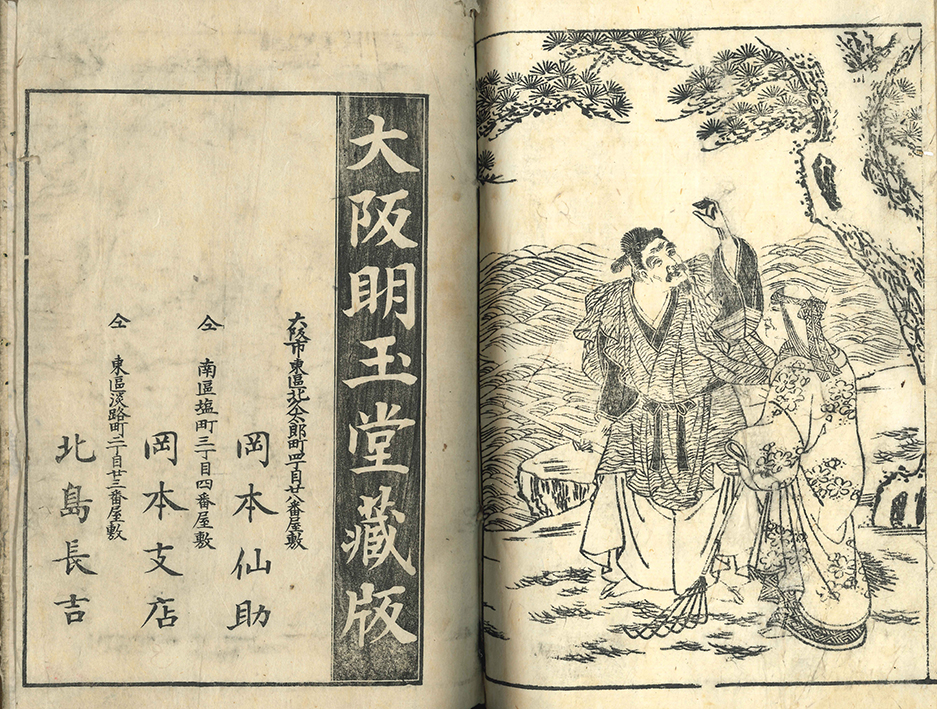 大阪明玉堂藏版
大阪市東區北久太郎町四丁目廿八番屋敷
岡本仙助
仝 南區塩町三丁目四番屋敷
岡本支店
仝 東區淡路町二丁目廿三番屋敷
北島長吉